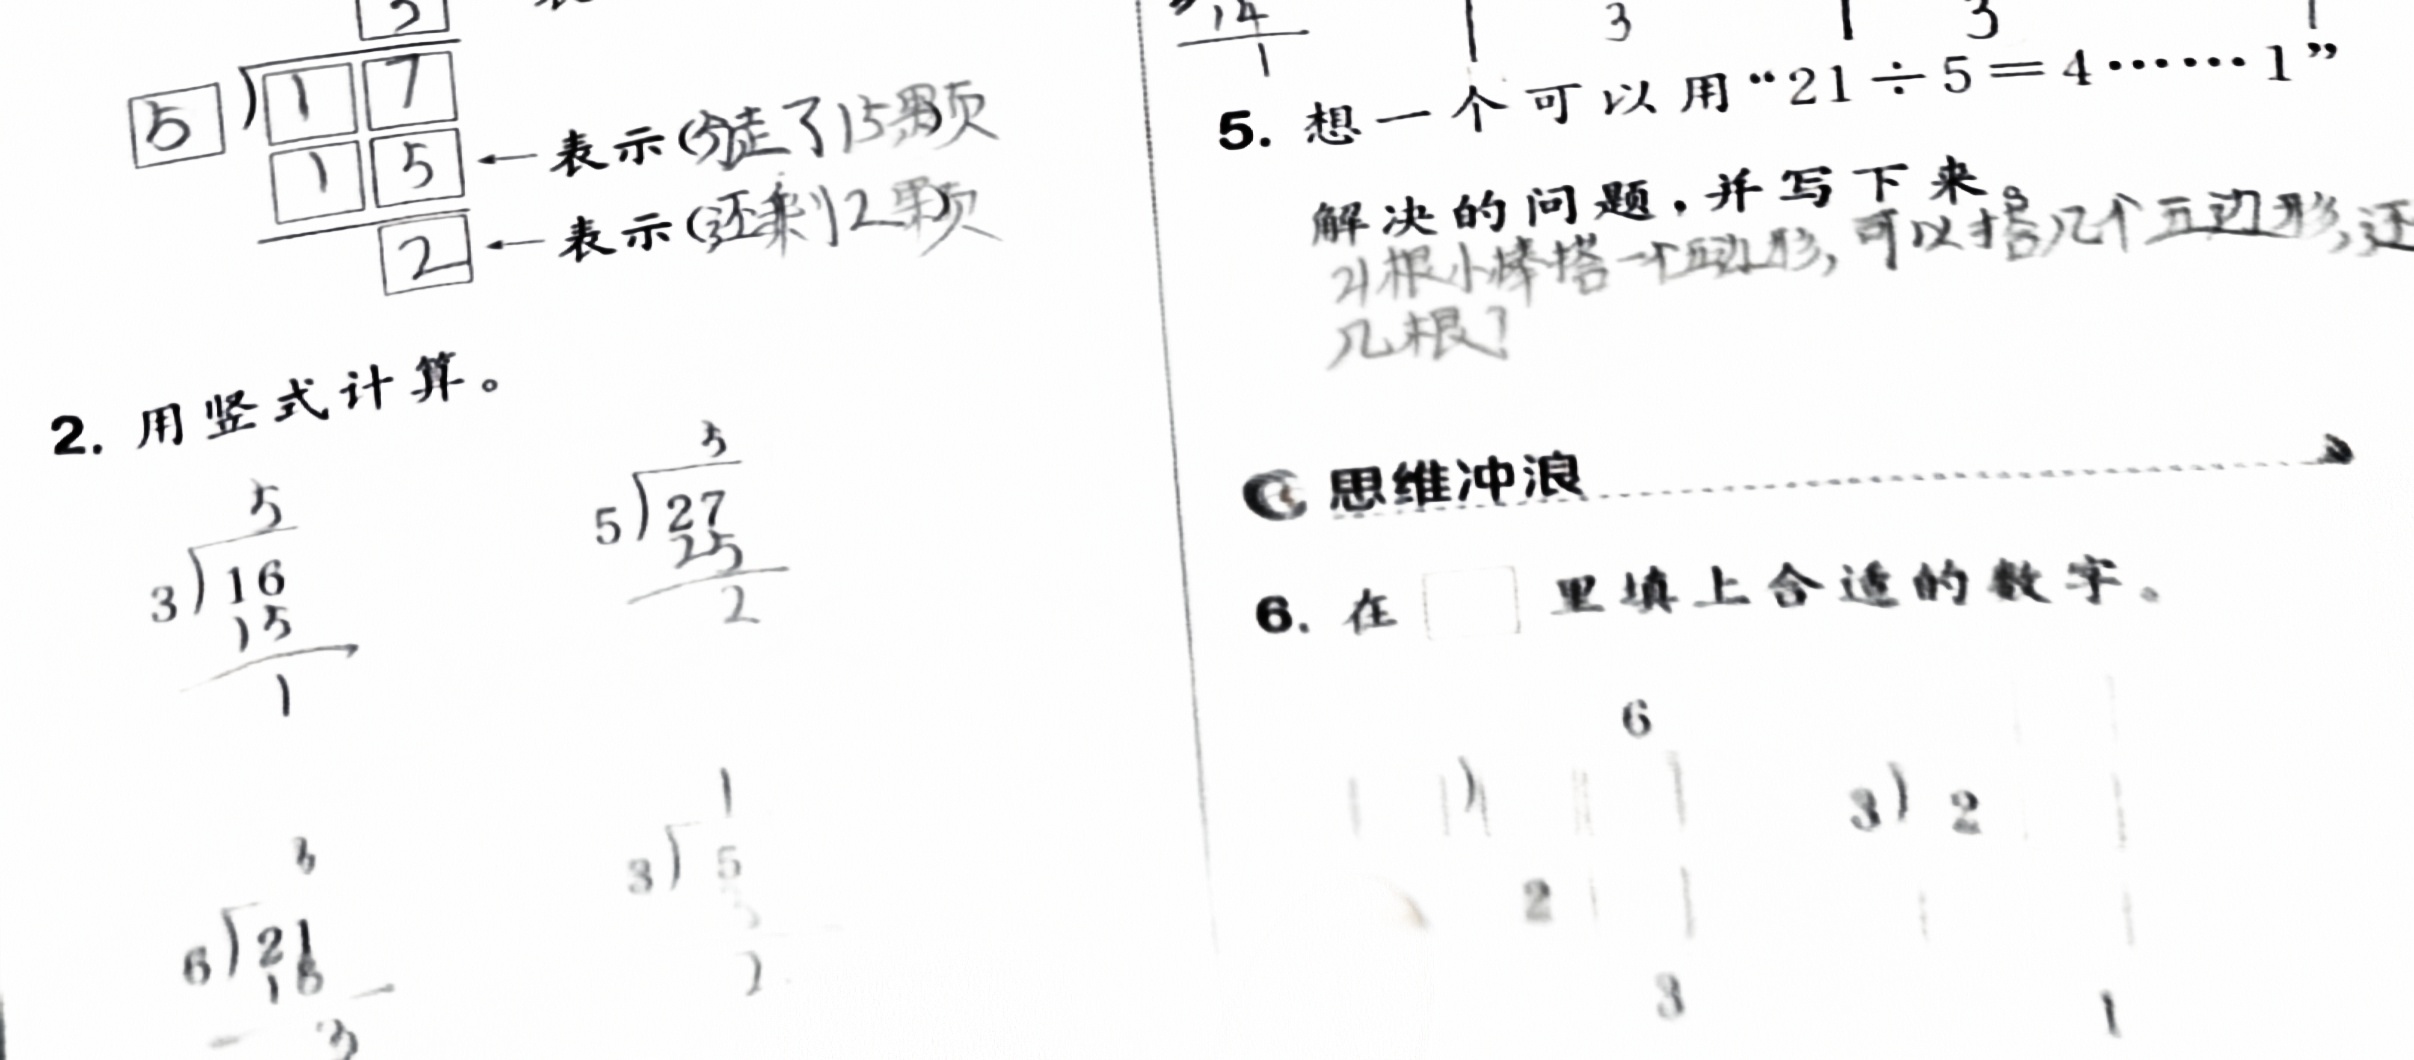 3
5 ) 1 7
1 5 ←表示(分走了15颗)
2 ←表示(还剩2颗)
2. 用竖式计算。
5
3 ) 16
15
1
5
5 ) 27
25
2
3
6 ) 21
18
3
1
3 ) 5
3
2
14
1
3
3
5. 想一个可以用“21÷5=4……1”
解决的问题,并写下来。
21根小棒搭一个五边形,可以搭几个五边形,还
几根?
思维冲浪
6. 在□里填上合适的数字。
6
)
2
3
3 ) 2
1